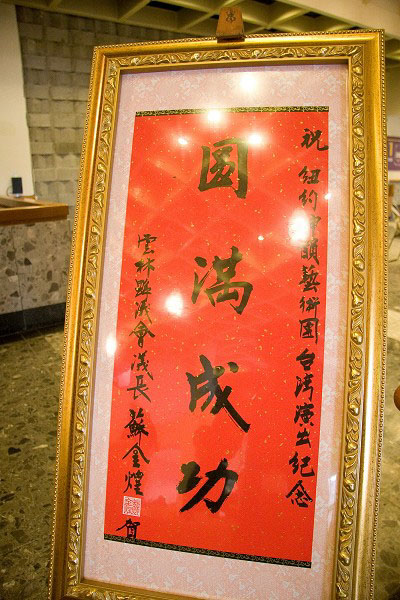 祝 紐約神韻藝術団台湾演出紀念
圓滿成功
雲林縣議會議長 蘇金煌 賀